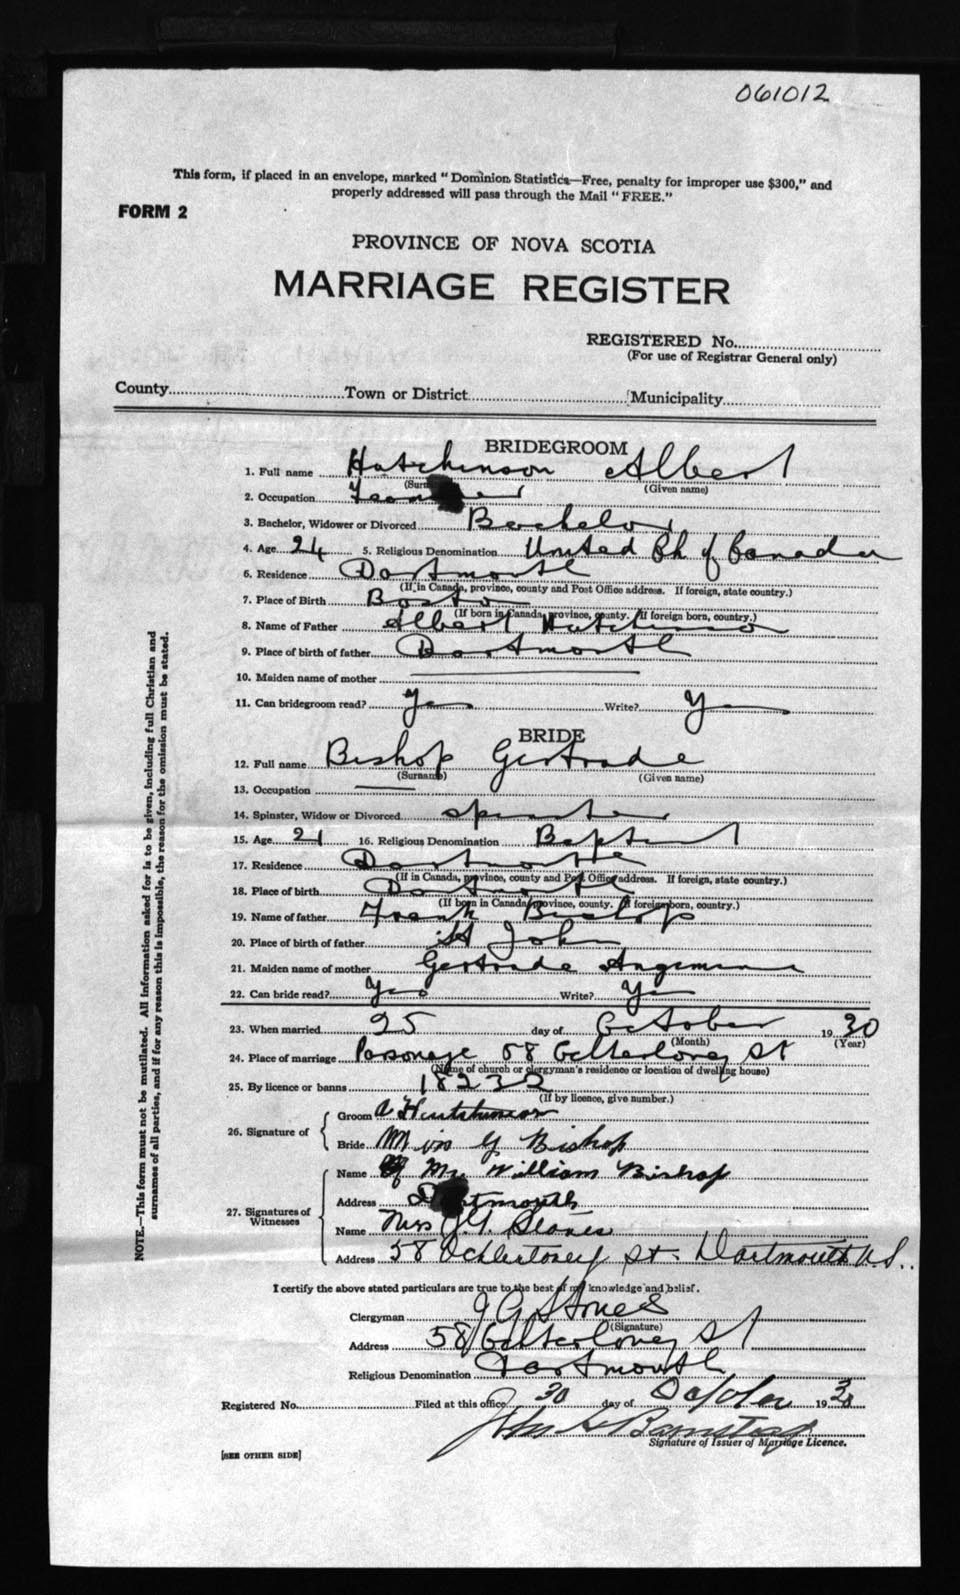 061012
This form, if placed in an envelope, marked "Dominion Statistics—Free, penalty for improper use $300," and
properly addressed will pass through the Mail "FREE."
FORM 2
PROVINCE OF NOVA SCOTIA
MARRIAGE REGISTER
REGISTERED No.
(For use of Registrar General only)
County Town or District Municipality
BRIDEGROOM
1. Full name Hutchinson Albert
(Surname) (Given name)
2. Occupation
3. Bachelor, Widower or Divorced Bachelor
4. Age 24 5. Religious Denomination United Ch of Canada
6. Residence Dartmouth
(If in Canada, province, county and Post Office address. If foreign, state country.)
7. Place of Birth Boston
(If born in Canada, province, county. If foreign born, country.)
8. Name of Father Albert Hutchinson
9. Place of birth of father Dartmouth
10. Maiden name of mother
11. Can bridegroom read? Yes Write? Yes
BRIDE
12. Full name Bishop Gertrude
(Surname) (Given name)
13. Occupation
14. Spinster, Widow or Divorced Spinster
15. Age 21 16. Religious Denomination Baptist
17. Residence Dartmouth
(If in Canada, province, county and Post Office address. If foreign, state country.)
18. Place of birth Dartmouth
(If born in Canada, province, county. If foreign born, country.)
19. Name of father Frank Bishop
20. Place of birth of father St John
21. Maiden name of mother Gertrude
22. Can bride read? Yes Write? Yes
23. When married 25 day of October 1930
(Month) (Year)
24. Place of marriage Parsonage 58 Ochterloney St
(Name of church or clergyman's residence or location of dwelling house)
25. By licence or banns 18232
(If by licence, give number.)
26. Signature of
Groom A Hutchinson
Bride Miss G Bishop
27. Signatures of Witnesses
Name Mr William Bishop
Address Dartmouth
Name Mrs J.G.
Address 58 Ochterloney St. Dartmouth N.S.
I certify the above stated particulars are true to the best of my knowledge and belief.
Clergyman J G
(Signature)
Address 58 Ochterloney St
Religious Denomination Dartmouth
Registered No. Filed at this office 30 day of October 1930
John
Signature of Issuer of Marriage Licence.
[SEE OTHER SIDE]
NOTE.—This form must not be mutilated. All information asked for is to be given, including full Christian and
surnames of all parties, and if for any reason this is impossible, the reason for the omission must be stated.